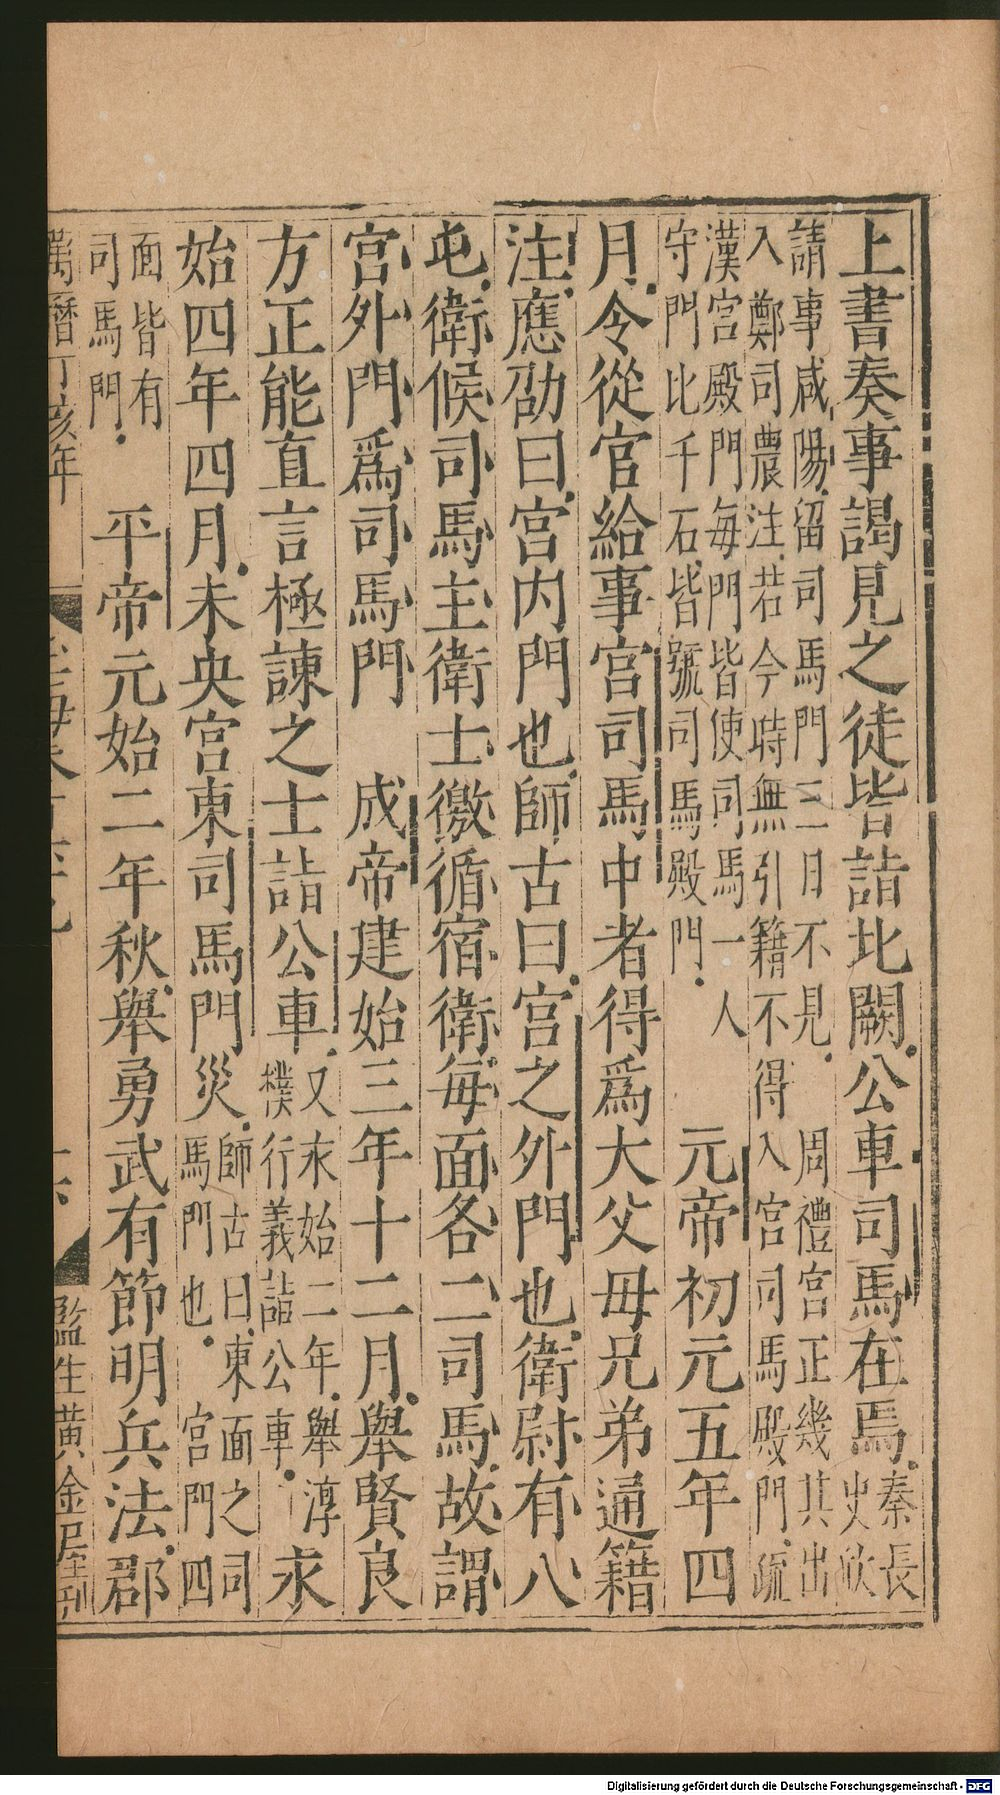 上書奏事謁見之徒皆詣北闕公車司馬在焉秦長
史欣
請事咸陽留司馬門三日不見　周禮宮正幾其出
入鄭司農注若今時無引籍不得入宮司馬殿門疏
漢宮殿門每門皆使司馬一人
守門比千石皆號司馬殿門　元帝初元五年四
月令從官給事宮司馬中者得爲大父母兄弟通籍
注應劭曰宮內門也師古曰宮之外門也衛尉有八
屯衛候司馬主衛士徼循宿衛每面各二司馬故謂
宮外門爲司馬門　成帝建始三年十二月舉賢良
方正能直言極諫之士詣公車又永始二年舉淳
樸行義詣公車　求
始四年四月未央宮東司馬門災師古曰東面之司
馬門也　宮門四
面皆有
司馬門　平帝元始二年秋舉勇武有節明兵法郡
萬曆丁亥年
監生黃金屋刊
Digitalisierung gefördert durch die Deutsche Forschungsgemeinschaft - DFG